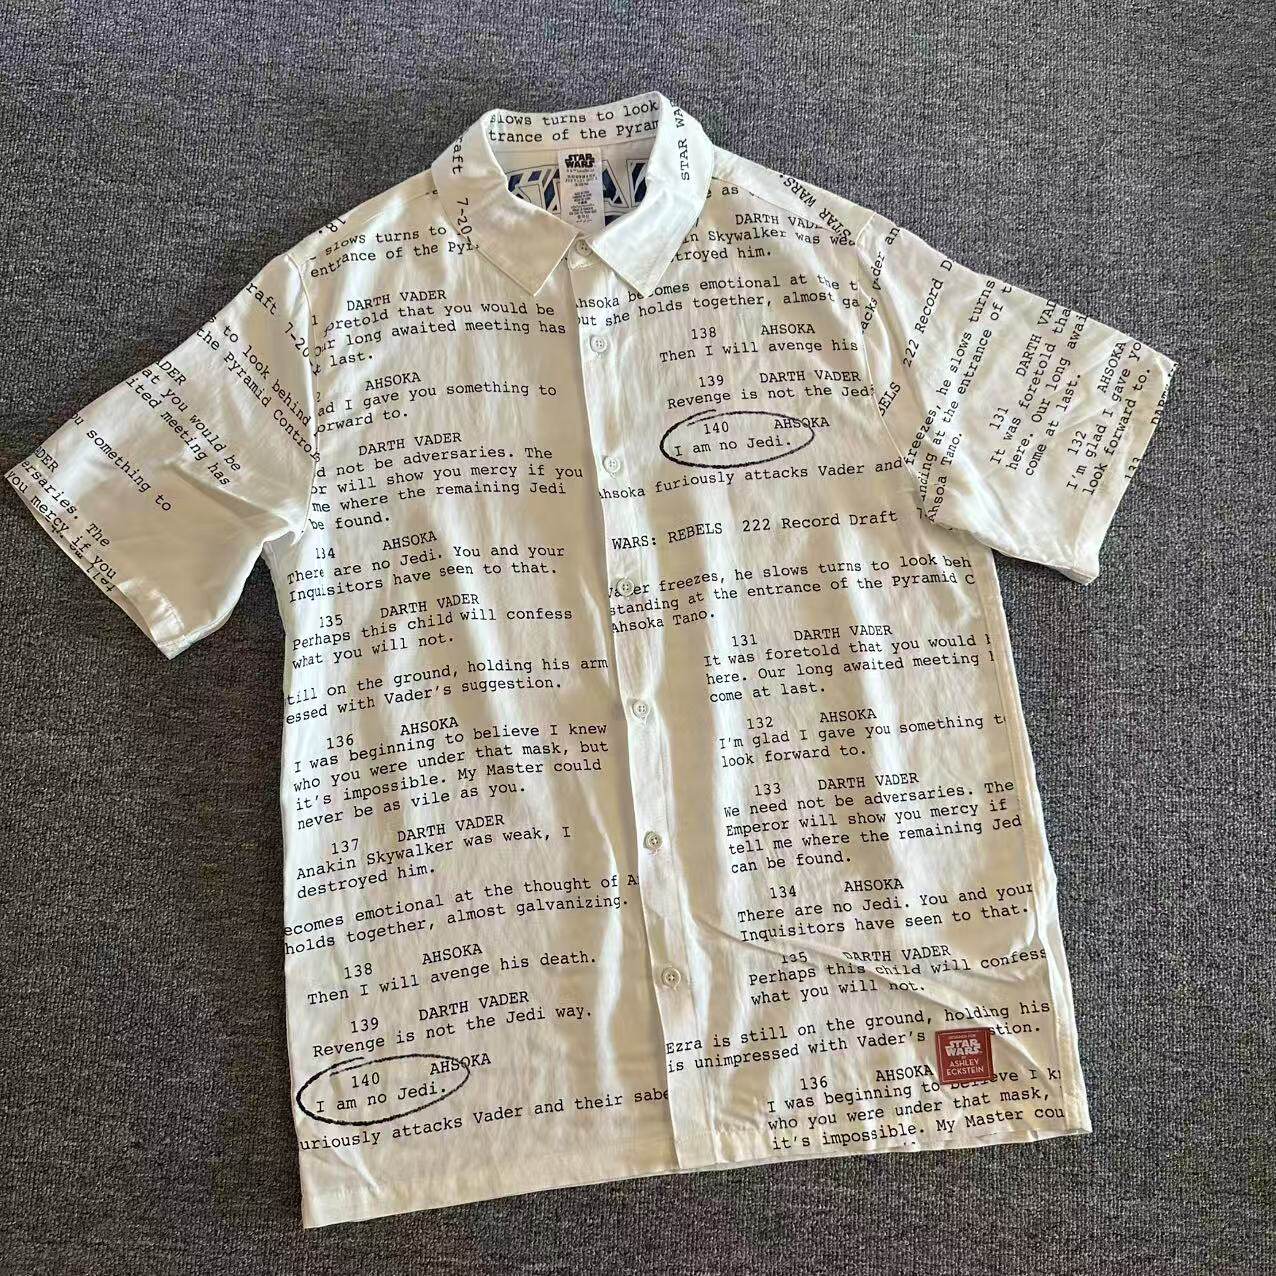 slows turns to look
trance of the Pyram
STAR WAR
aft 7-20
STAR WARS
slows turns to
entrance of the Pyr
DARTH VADER
pretold that you would be
ur long awaited meeting has
last.
AHSOKA
ad I gave you something to
orward to.
DARTH VADER
d not be adversaries. The
or will show you mercy if you
me where the remaining Jedi
be found.
134 AHSOKA
There are no Jedi. You and your
Inquisitors have seen to that.
135 DARTH VADER
Perhaps this child will confess
what you will not.
till on the ground, holding his arm
essed with Vader's suggestion.
136 AHSOKA
I was beginning to believe I knew
who you were under that mask, but
it's impossible. My Master could
never be as vile as you.
137 DARTH VADER
Anakin Skywalker was weak, I
destroyed him.
ecomes emotional at the thought of A
holds together, almost galvanizing.
138 AHSOKA
Then I will avenge his death.
139 DARTH VADER
Revenge is not the Jedi way.
140 AHSOKA
I am no Jedi.
uriously attacks Vader and their sabe
e as
DARTH VAD
n Skywalker was wea
troyed him.
Ahsoka becomes emotional at the t
but she holds together, almost ga
138 AHSOKA
Then I will avenge his
139 DARTH VADER
Revenge is not the Jedi
140 AHSOKA
I am no Jedi.
Ahsoka furiously attacks Vader and
WARS: REBELS 222 Record Draft
Vader freezes, he slows turns to look beh
standing at the entrance of the Pyramid C
Ahsoka Tano.
131 DARTH VADER
It was foretold that you would b
here. Our long awaited meeting
come at last.
132 AHSOKA
I'm glad I gave you something to
look forward to.
133 DARTH VADER
We need not be adversaries. The
Emperor will show you mercy if
tell me where the remaining Jed
can be found.
134 AHSOKA
There are no Jedi. You and your
Inquisitors have seen to that.
135 DARTH VADER
Perhaps this child will confess
what you will not.
Ezra is still on the ground, holding his
is unimpressed with Vader's stion.
136 AHSOKA
I was beginning to believe I kn
who you were under that mask,
it's impossible. My Master cou
STAR WARS
ASHLEY
ECKSTEIN
raft 7-20
to look behind
the Pyramid Contro
DER
at you would be
ited meeting has
u something to
DER
ersaries. The
ou mercy if you
STAR WARS:
acks Vader and
BELS 222 Record D
freezes, he slows turns
nding at the entrance of t
Ahsoka Tano.
131 DARTH VA
It was foretold tha
here. Our long awai
come at last.
132 AHSOKA
I'm glad I gave yo
look forward to.
133 DAR